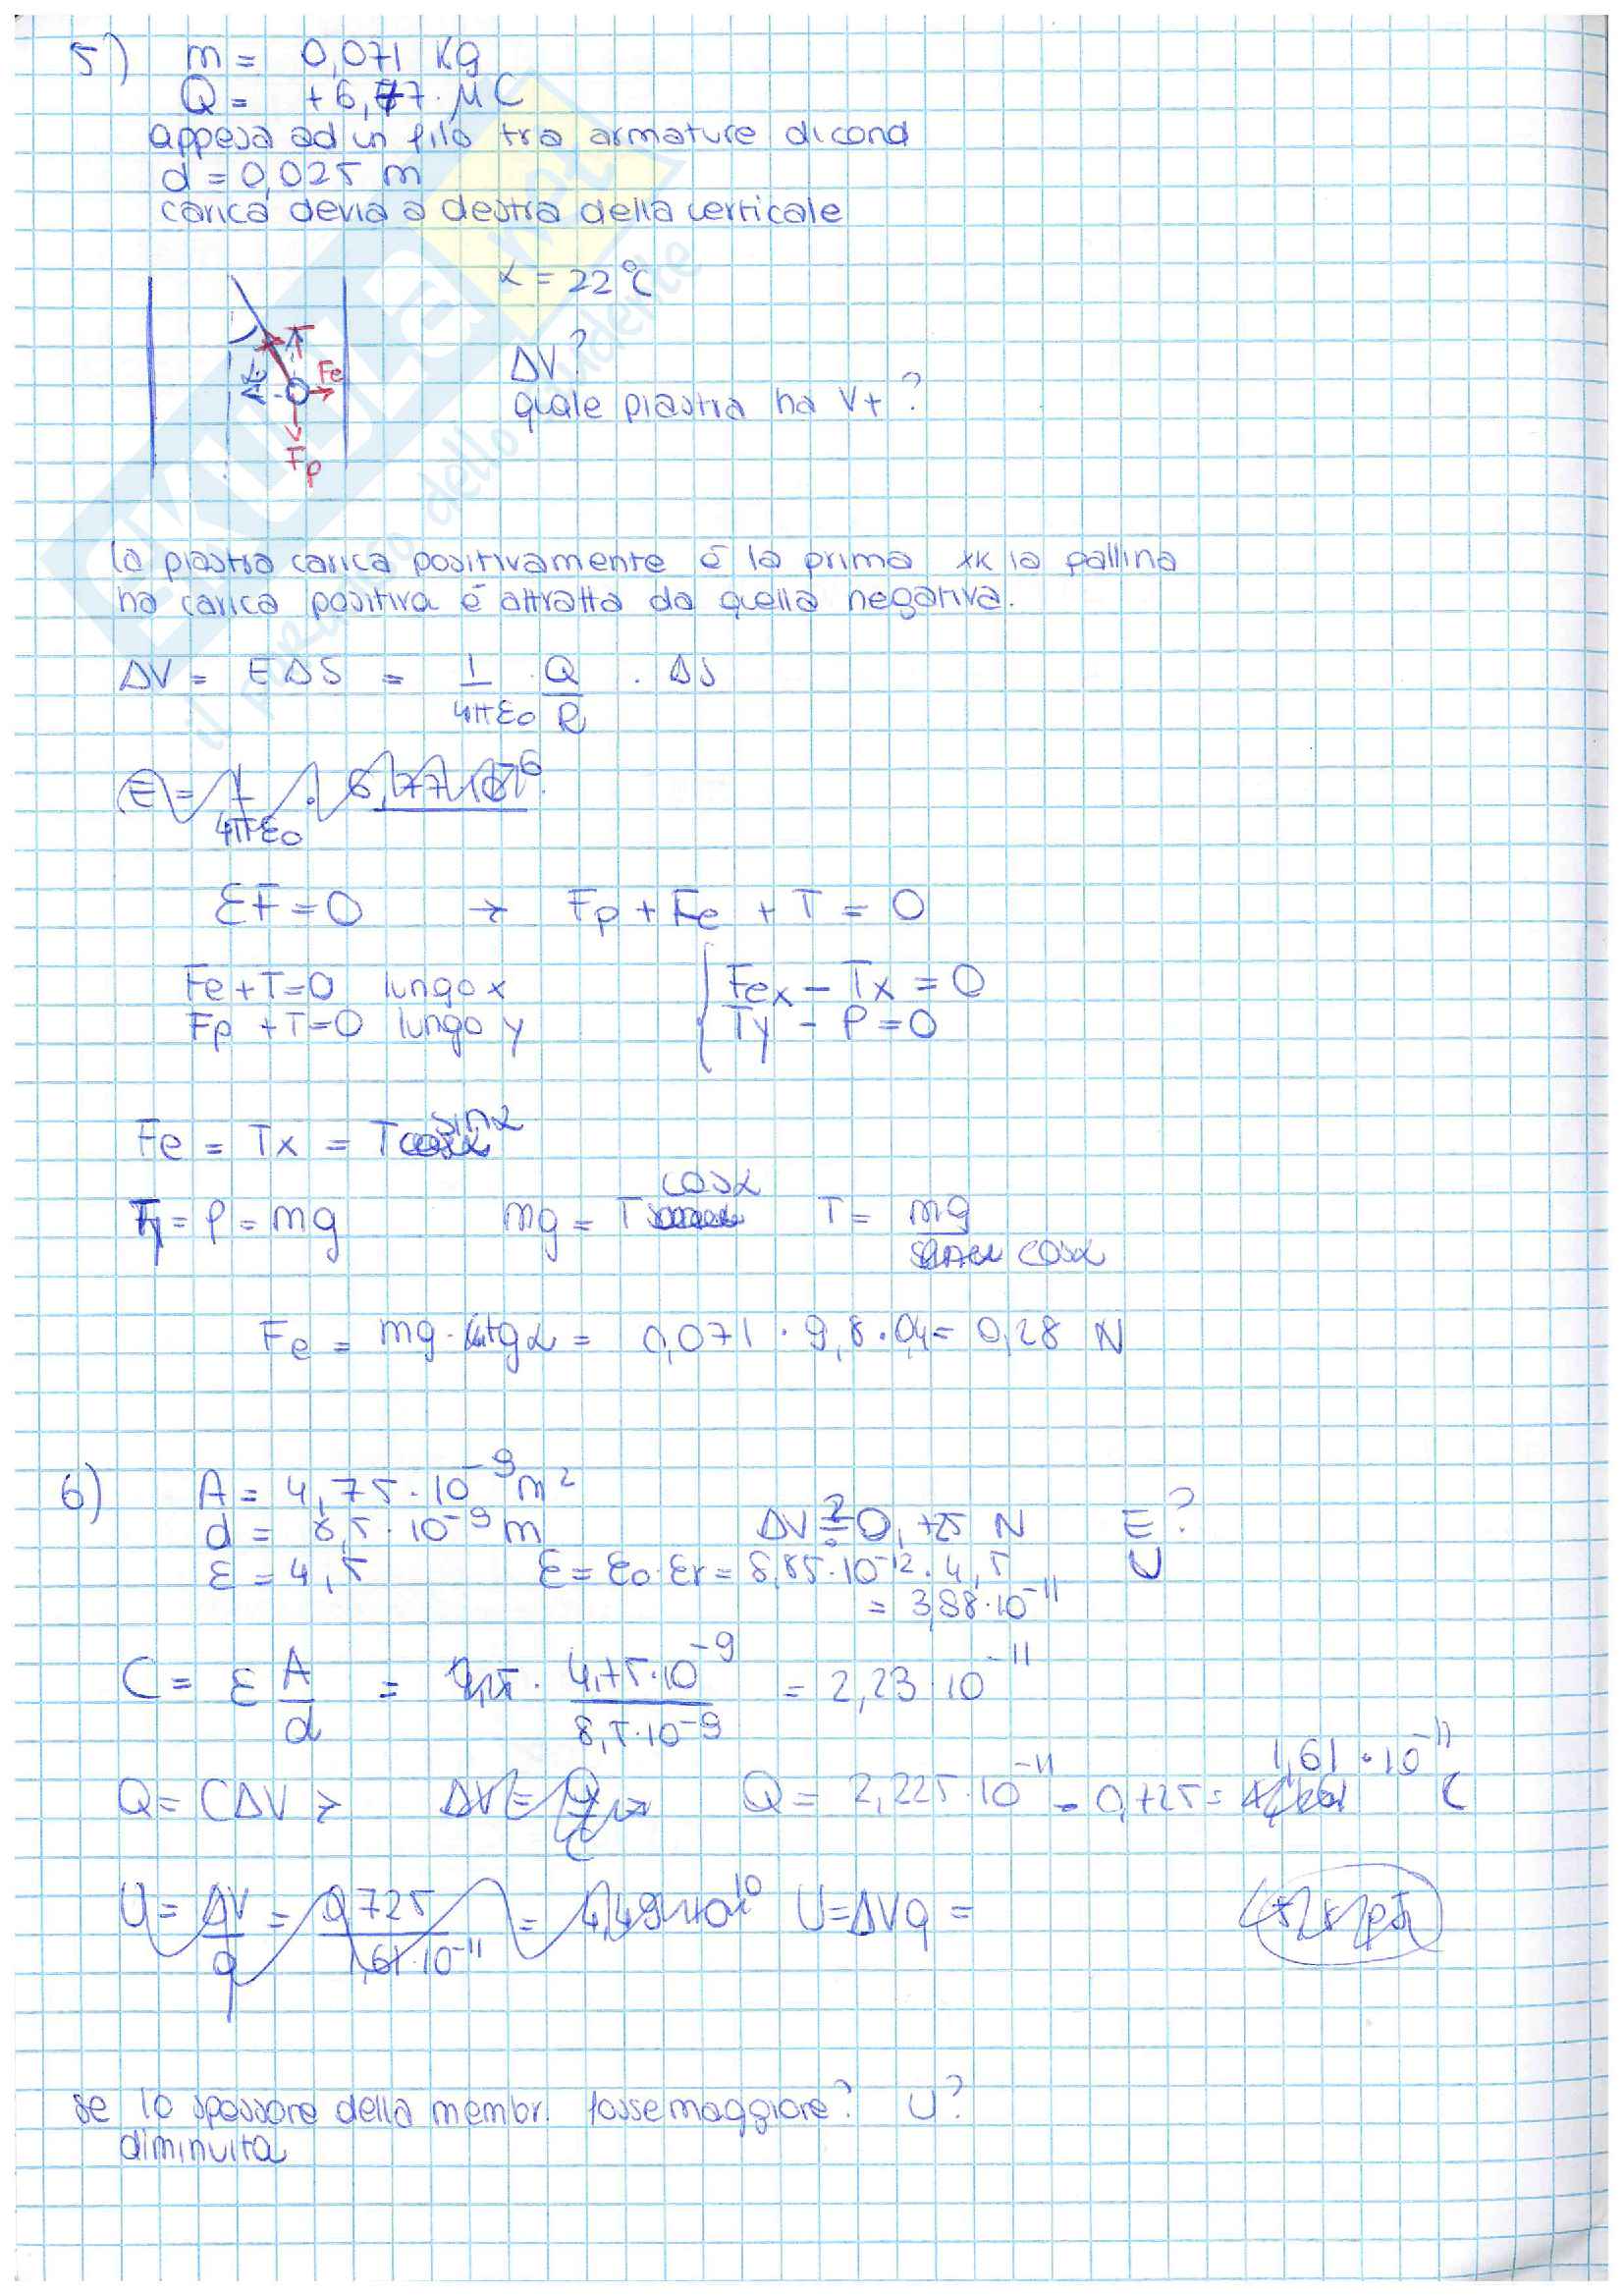 5) m = 0,071 Kg
Q = +6,77 · μC
appesa ad un filo tra armature di cond
d = 0,025 m
carica devia a destra della verticale
α = 22°C
ΔV?
quale piastra ha V+ ?
T
Fe
α
Fp
la piastra carica positivamente è la prima xk la pallina
ha carica positiva è attratta da quella negativa.
ΔV = EΔS = 1/4πε0 · Q/R · ΔS
E = 1/4πε0 · 6,77·10^-6
ΣF = 0 → Fp + Fe + T = 0
Fe + T = 0 lungo x { Fex - Tx = 0
Fp + T = 0 lungo y Ty - P = 0
Fe = Tx = T sinα
Ty = P = mg mg = T cosα T = mg/cosα
Fe = mg · tgα = 0,071 · 9,8 · 0,4 = 0,28 N
6) A = 4,75 · 10^-9 m²
d = 8,5 · 10^-9 m ΔV = 0,725 N E?
ε = 4,5 ε = ε0·εr = 8,85·10^-12 · 4,5 U
= 3,98·10^-11
C = ε A/d = · 4,75·10^-9/8,5·10^-9 = 2,23·10^-11
Q = CΔV → ΔV = Q/C → Q = 2,225·10^-11 · 0,725 = 1,61·10^-11 C
U = ΔV/q = 0,725/1,61·10^-11 = 4,49·10^10 U = ΔVq =
se lo spessore della membr. fosse maggiore? U?
diminuita
SKUOLA.net
il paradiso dello studente